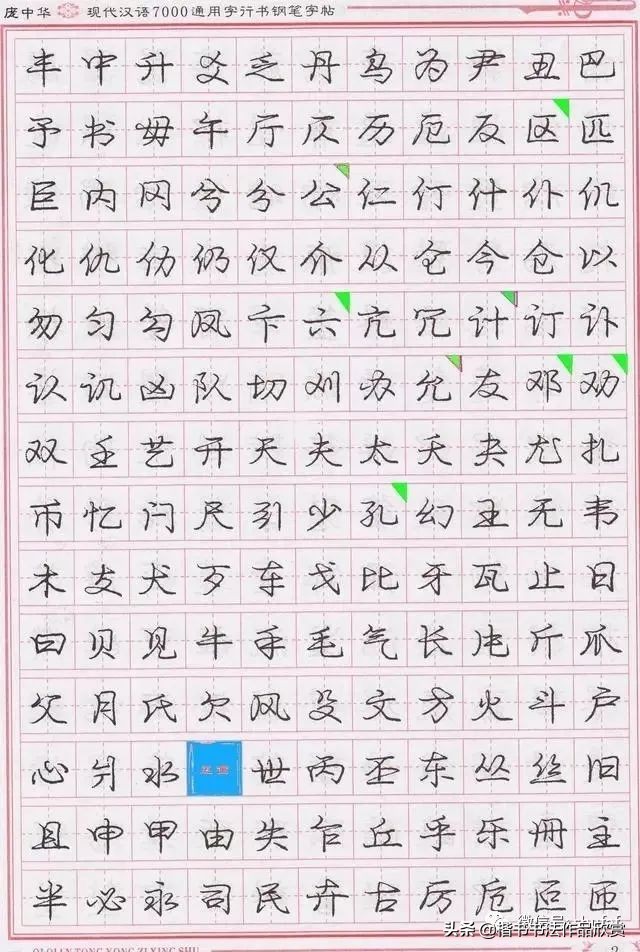 庞中华 现代汉语7000通用字行书钢笔字帖
丰中升爻乏丹鸟为尹丑巴
予书毋午厅仄历厄反区匹
巨内网兮分公仁仃什仆仉
化仇仂仍仅介从仑今仓以
勿匀勾凤卞六亢冗计订讣
认讥凶队切刈办允友邓劝
双王艺开天夫太夭夬尤扎
币忆闩尺引少孔幻王无韦
木支犬歹车戈比牙瓦止日
曰贝见牛手毛气长片斤爪
父月氏欠风殳文方火斗户
心爿水世丙丕东丛丝旧
且申甲由失乍丘乎乐册主
半必永司民卉古厉卮叵匝
头条@楷书书法作品欣赏